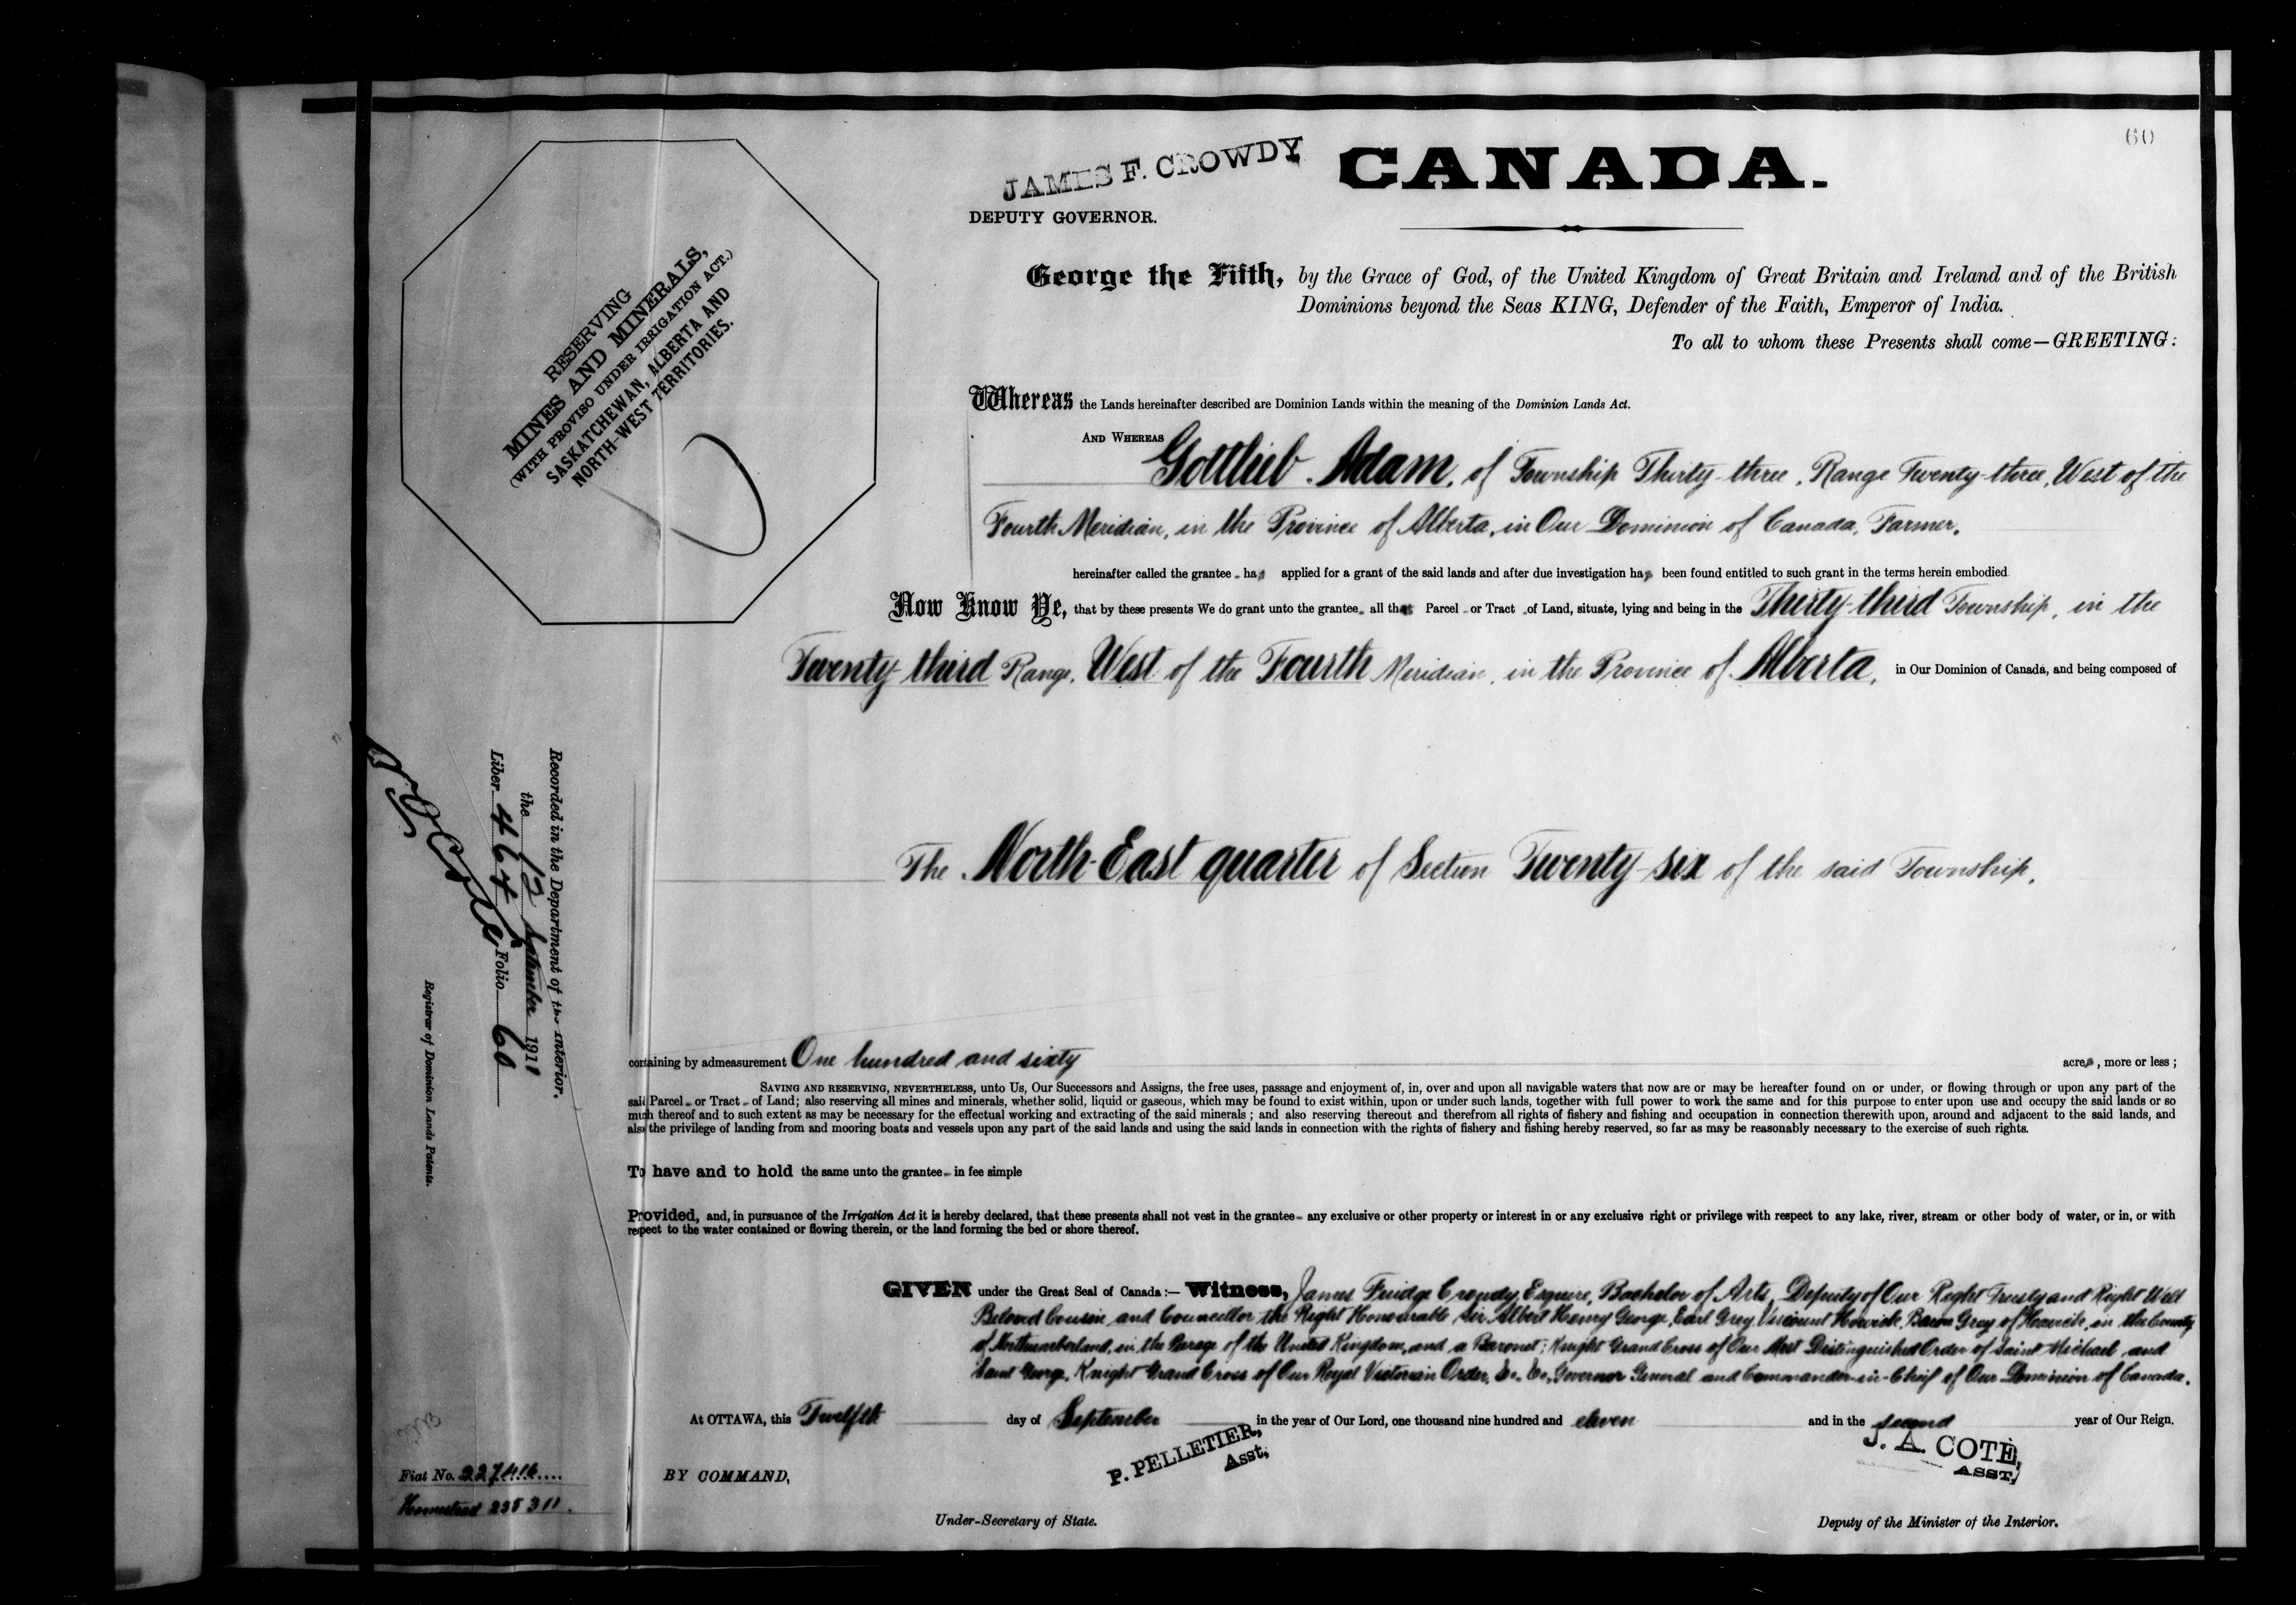 60
JAMES F. CROWDY
CANADA.
DEPUTY GOVERNOR.
George the Fifth, by the Grace of God, of the United Kingdom of Great Britain and Ireland and of the British
Dominions beyond the Seas KING, Defender of the Faith, Emperor of India.
To all to whom these Presents shall come—GREETING:
RESERVING
MINES AND MINERALS,
(WITH PROVISO UNDER IRRIGATION ACT.)
SASKATCHEWAN, ALBERTA AND
NORTH-WEST TERRITORIES.
Whereas the Lands hereinafter described are Dominion Lands within the meaning of the Dominion Lands Act.
AND WHEREAS Gottlieb Adam, of Township Thirty-three, Range Twenty-three, West of the
Fourth Meridian, in the Province of Alberta, in Our Dominion of Canada, Farmer,
hereinafter called the grantee has applied for a grant of the said lands and after due investigation has been found entitled to such grant in the terms herein embodied
Now Know Ye, that by these presents We do grant unto the grantee all that Parcel or Tract of Land, situate, lying and being in the Thirty-third Township, in the
Twenty-third Range, West of the Fourth Meridian, in the Province of Alberta, in Our Dominion of Canada, and being composed of
The North-East quarter of Section Twenty-six of the said Township,
containing by admeasurement One hundred and sixty acres, more or less;
SAVING AND RESERVING, NEVERTHELESS, unto Us, Our Successors and Assigns, the free uses, passage and enjoyment of, in, over and upon all navigable waters that now are or may be hereafter found on or under, or flowing through or upon any part of the
said Parcel or Tract of Land; also reserving all mines and minerals, whether solid, liquid or gaseous, which may be found to exist within, upon or under such lands, together with full power to work the same and for this purpose to enter upon use and occupy the said lands or so
much thereof and to such extent as may be necessary for the effectual working and extracting of the said minerals; and also reserving thereout and therefrom all rights of fishery and fishing and occupation in connection therewith upon, around and adjacent to the said lands, and
also the privilege of landing from and mooring boats and vessels upon any part of the said lands and using the said lands in connection with the rights of fishery and fishing hereby reserved, so far as may be reasonably necessary to the exercise of such rights.
To have and to hold the same unto the grantee in fee simple
Provided, and, in pursuance of the Irrigation Act it is hereby declared, that these presents shall not vest in the grantee any exclusive or other property or interest in or any exclusive right or privilege with respect to any lake, river, stream or other body of water, or in, or with
respect to the water contained or flowing therein, or the land forming the bed or shore thereof.
GIVEN under the Great Seal of Canada:— Witness, James Fuidge Crowdy, Esquire, Bachelor of Arts, Deputy of Our Right Trusty and Right Well
Beloved Cousin and Councillor the Right Honourable Sir Albert Henry George, Earl Grey, Viscount Howick, Baron Grey of Howick, in the County
of Northumberland, in the Peerage of the United Kingdom, and a Baronet; Knight Grand Cross of Our Most Distinguished Order of Saint Michael and
Saint George, Knight Grand Cross of Our Royal Victorian Order, &c., &c., Governor General and Commander-in-Chief of Our Dominion of Canada.
At OTTAWA, this Twelfth day of September in the year of Our Lord, one thousand nine hundred and eleven and in the second year of Our Reign.
BY COMMAND,
P. PELLETIER,
Asst,
J. A. COTÉ,
ASST,
Under-Secretary of State.
Deputy of the Minister of the Interior.
Recorded in the Department of the Interior.
the 12 September 1911
Liber 464 Folio 60
Registrar of Dominion Lands Patents.
Fiat No. 227416
Homestead 235311.